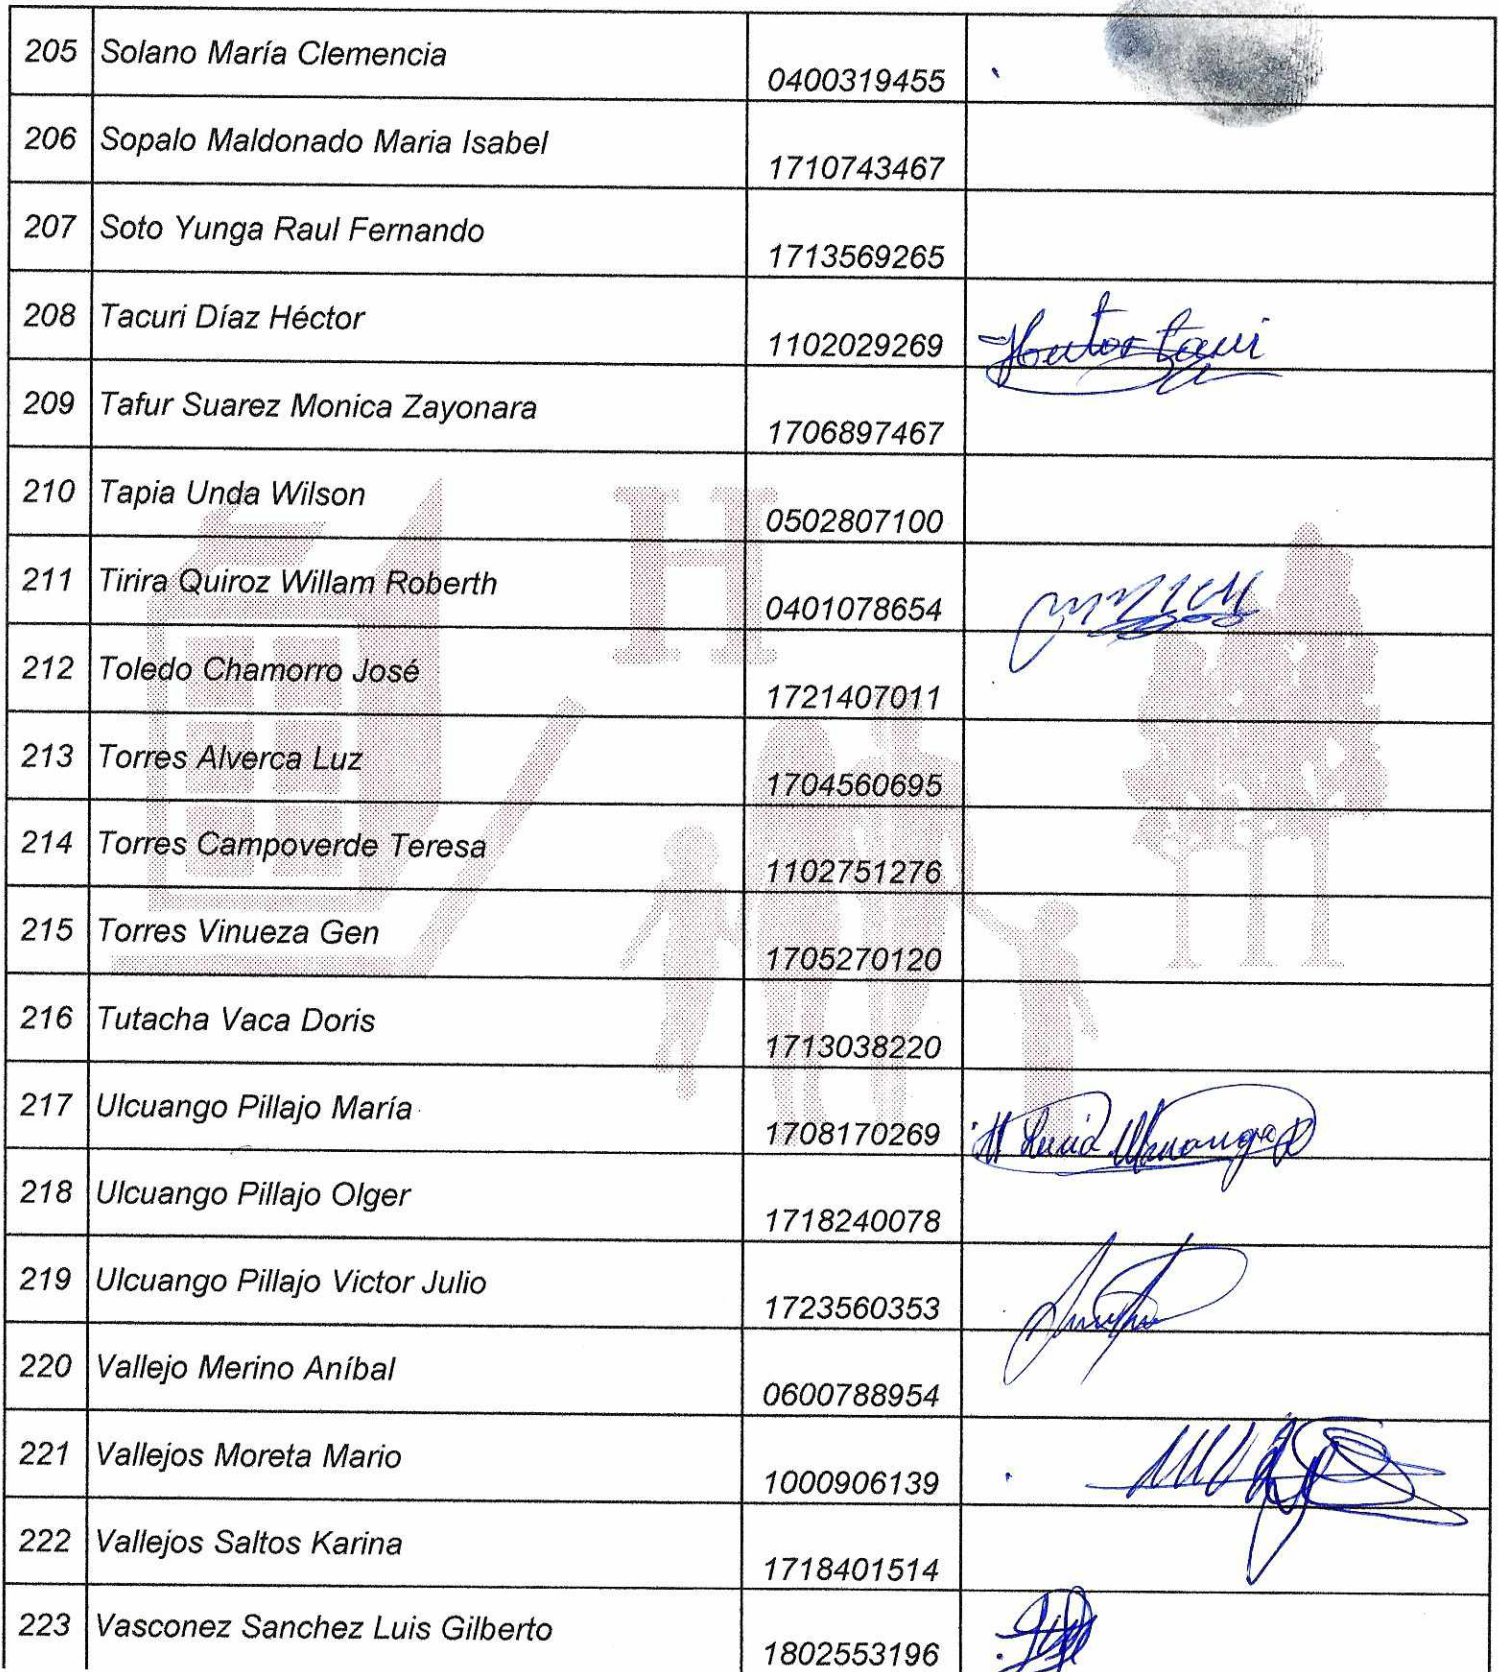 205 Solano María Clemencia 0400319455
206 Sopalo Maldonado Maria Isabel 1710743467
207 Soto Yunga Raul Fernando 1713569265
208 Tacuri Díaz Héctor 1102029269
209 Tafur Suarez Monica Zayonara 1706897467
210 Tapia Unda Wilson 0502807100
211 Tirira Quiroz Willam Roberth 0401078654
212 Toledo Chamorro José 1721407011
213 Torres Alverca Luz 1704560695
214 Torres Campoverde Teresa 1102751276
215 Torres Vinueza Gen 1705270120
216 Tutacha Vaca Doris 1713038220
217 Ulcuango Pillajo María 1708170269
218 Ulcuango Pillajo Olger 1718240078
219 Ulcuango Pillajo Victor Julio 1723560353
220 Vallejo Merino Aníbal 0600788954
221 Vallejos Moreta Mario 1000906139
222 Vallejos Saltos Karina 1718401514
223 Vasconez Sanchez Luis Gilberto 1802553196
H